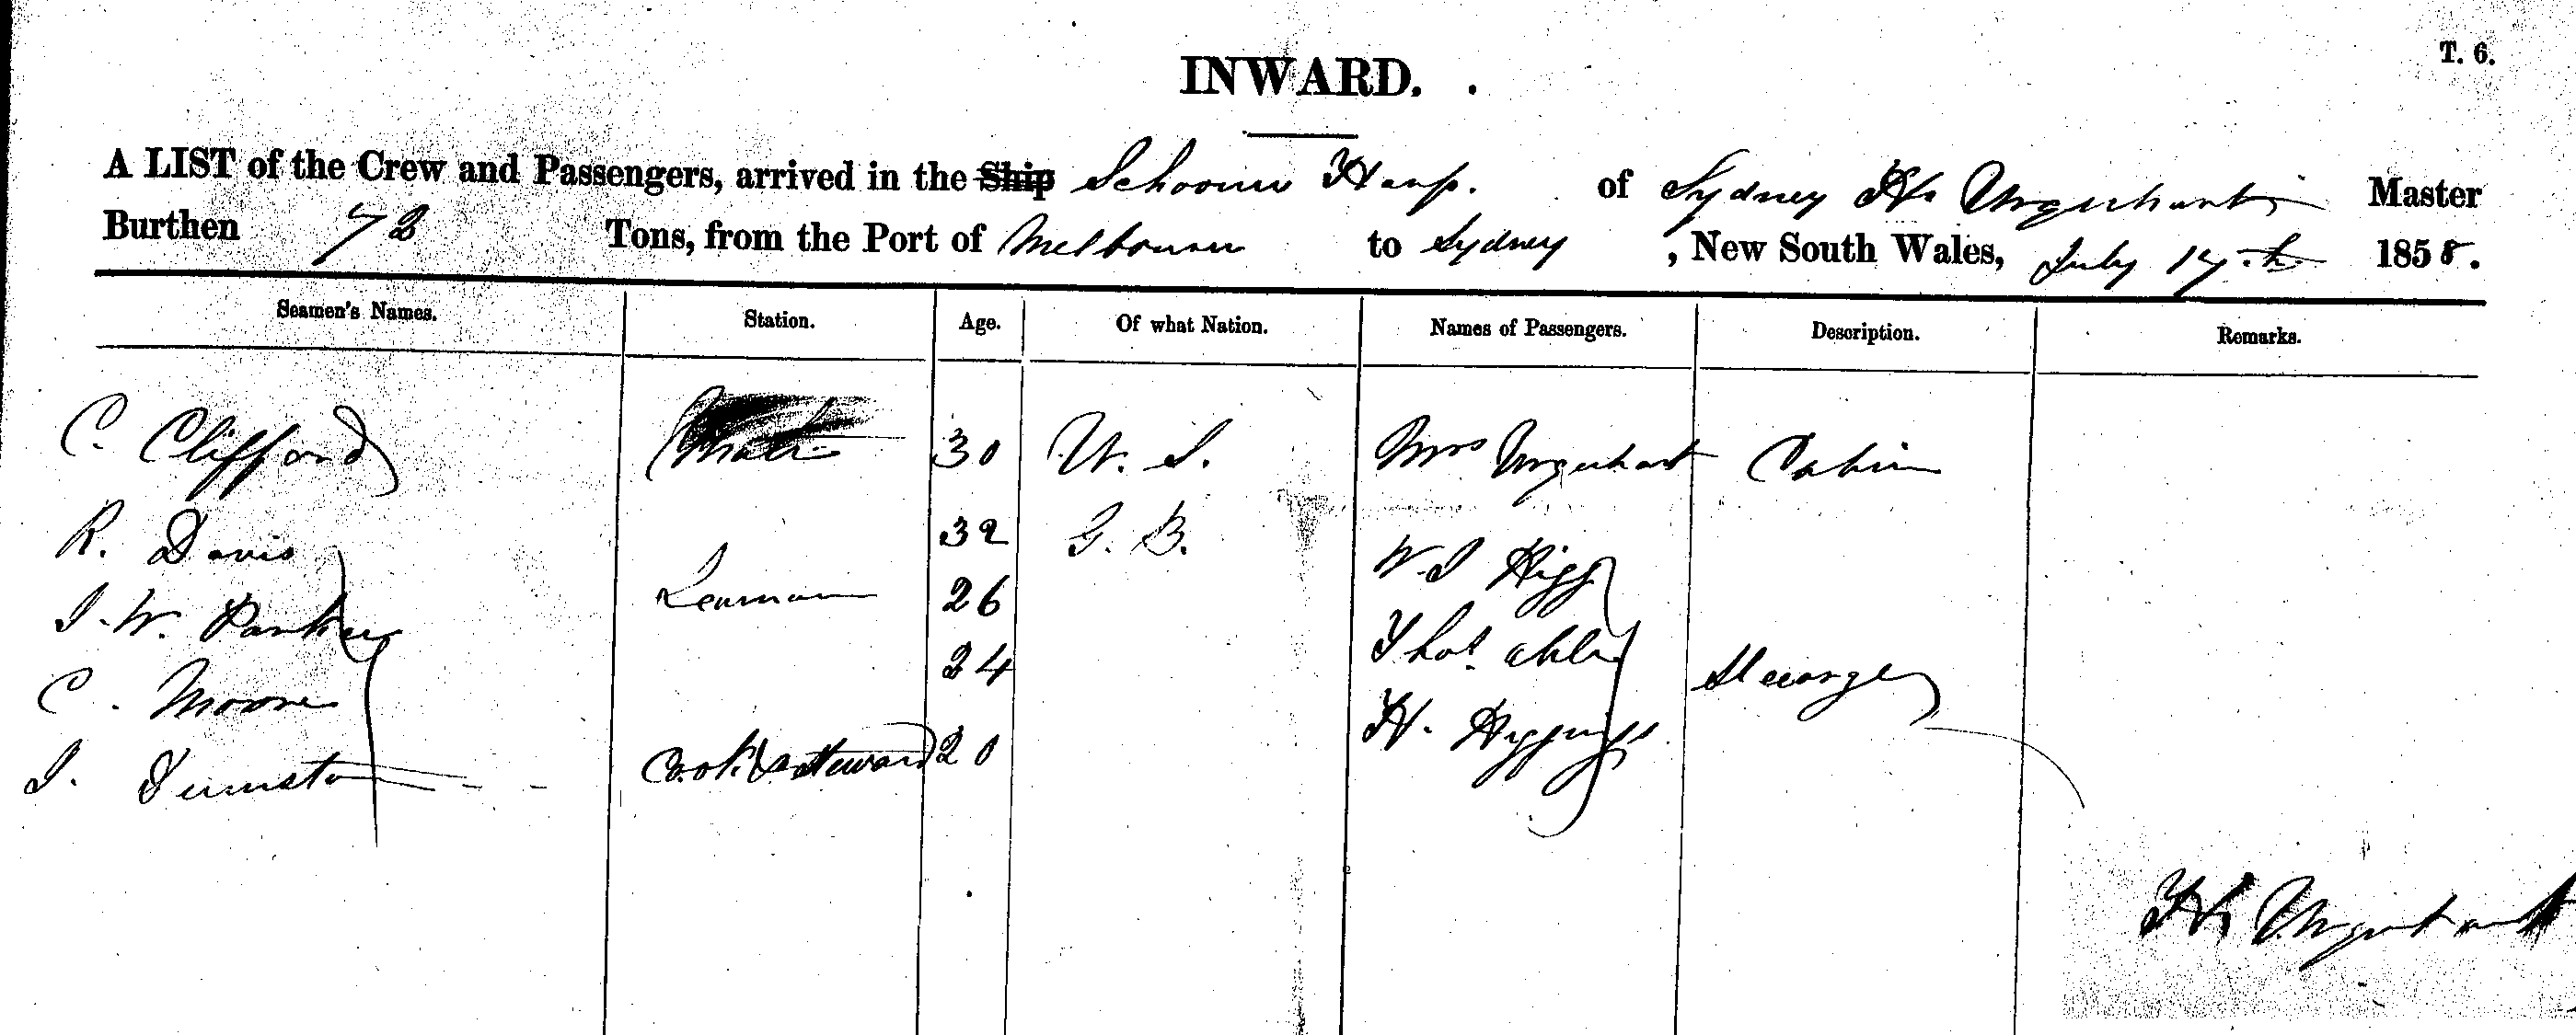 T. 6.
INWARD.
A LIST of the Crew and Passengers, arrived in the Ship Schooner Harp. of Sydney H. Urquhart Master
Burthen 72 Tons, from the Port of Melbourne to Sydney, New South Wales, July 17th 1858.
Seamen's Names. Station. Age. Of what Nation. Names of Passengers. Description. Remarks.
C. Clifford Mate 30 U. S. Mrs Urquhart Cabin
R. Davis 32 G. B.
J. W. Parker Seaman 26 W. J Higg
C. Moore 24 Thos. Steerage
J. Cook & Steward 20 H. Higgins
H. Urquhart